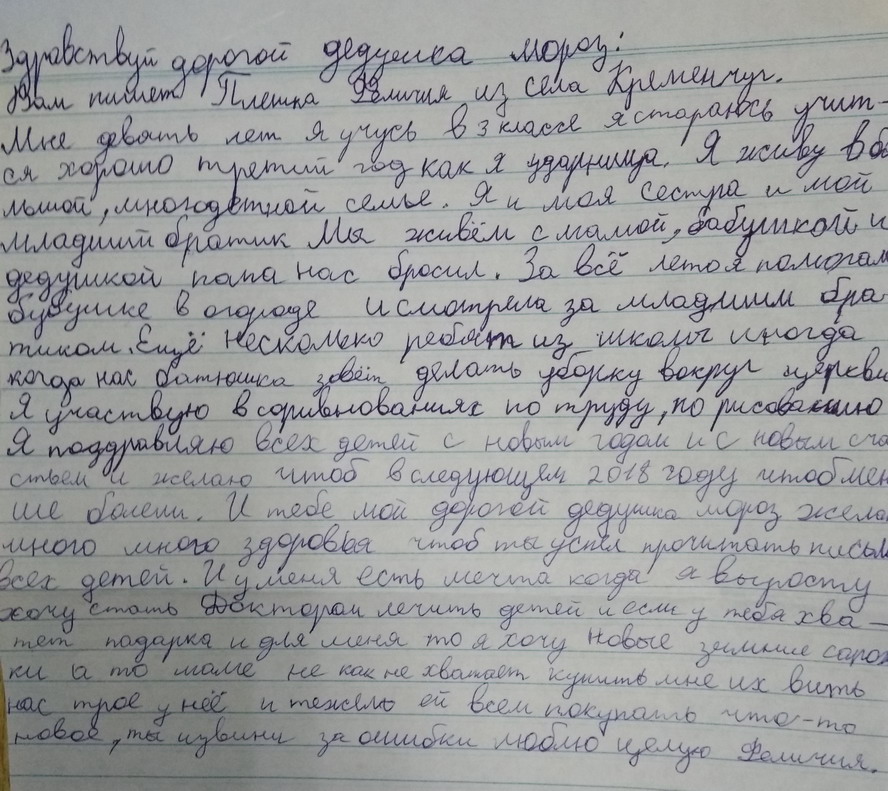 Здравствуй дорогой дедушка мороз!
Вам пишет Плешка Феличия из села Кременчуг.
Мне девять лет я учусь в 3 классе я стараюсь учит-
ся хорошо третий год как я ударница. Я живу в бо
льшой, многодетной семье. Я и моя сестра и мой
младший братик Мы живём с мамой, бабушкой и
дедушкой папа нас бросил. За всё лето я помогал
бубушке в огороде и смотрела за младшим бра-
тиком. Ещё несколько ребят из школы иногда
когда нас батюшка зовёт делать уборку вокруг церкви
Я участвую в соривнованиях по труду, по рисованию
Я поздравляю всех детей с новым годом и с новым сча
стьем и желаю чтоб в следующем 2018 году чтоб мен
ше болели. И тебе мой дорогой дедушка мороз желаю
много много здоровья чтоб ты успел прочитать письм
всех детей. И у меня есть мечта когда я выросту
хочу стать Доктором лечить детей и если у тебя хва-
тет падарка и для меня то я хочу новые зимние сапож
ки а то маме не как не хватает купить мне их вить
нас трое у неё и тежело ей всем покупать что-то
новое, ты извини за ошибки люблю целую Феличия.